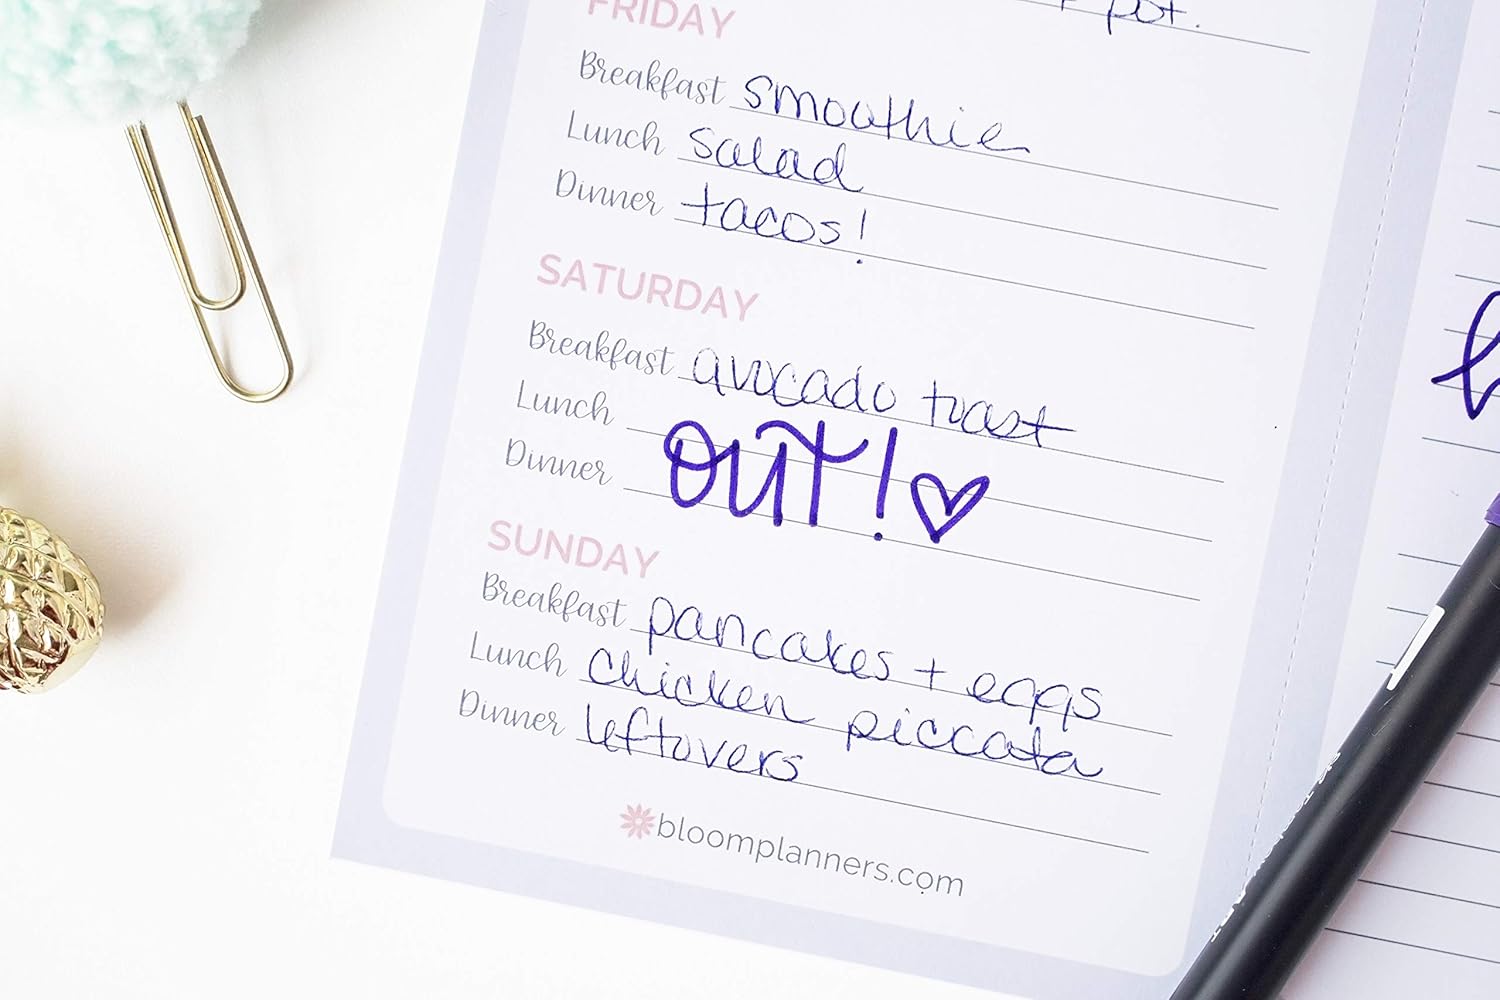 pot.
FRIDAY
Breakfast smoothie
Lunch salad
Dinner tacos!
SATURDAY
Breakfast avocado toast
Lunch
OUT!
Dinner
SUNDAY
Breakfast pancakes + eggs
Lunch chicken piccata
Dinner leftovers
bloomplanners.com